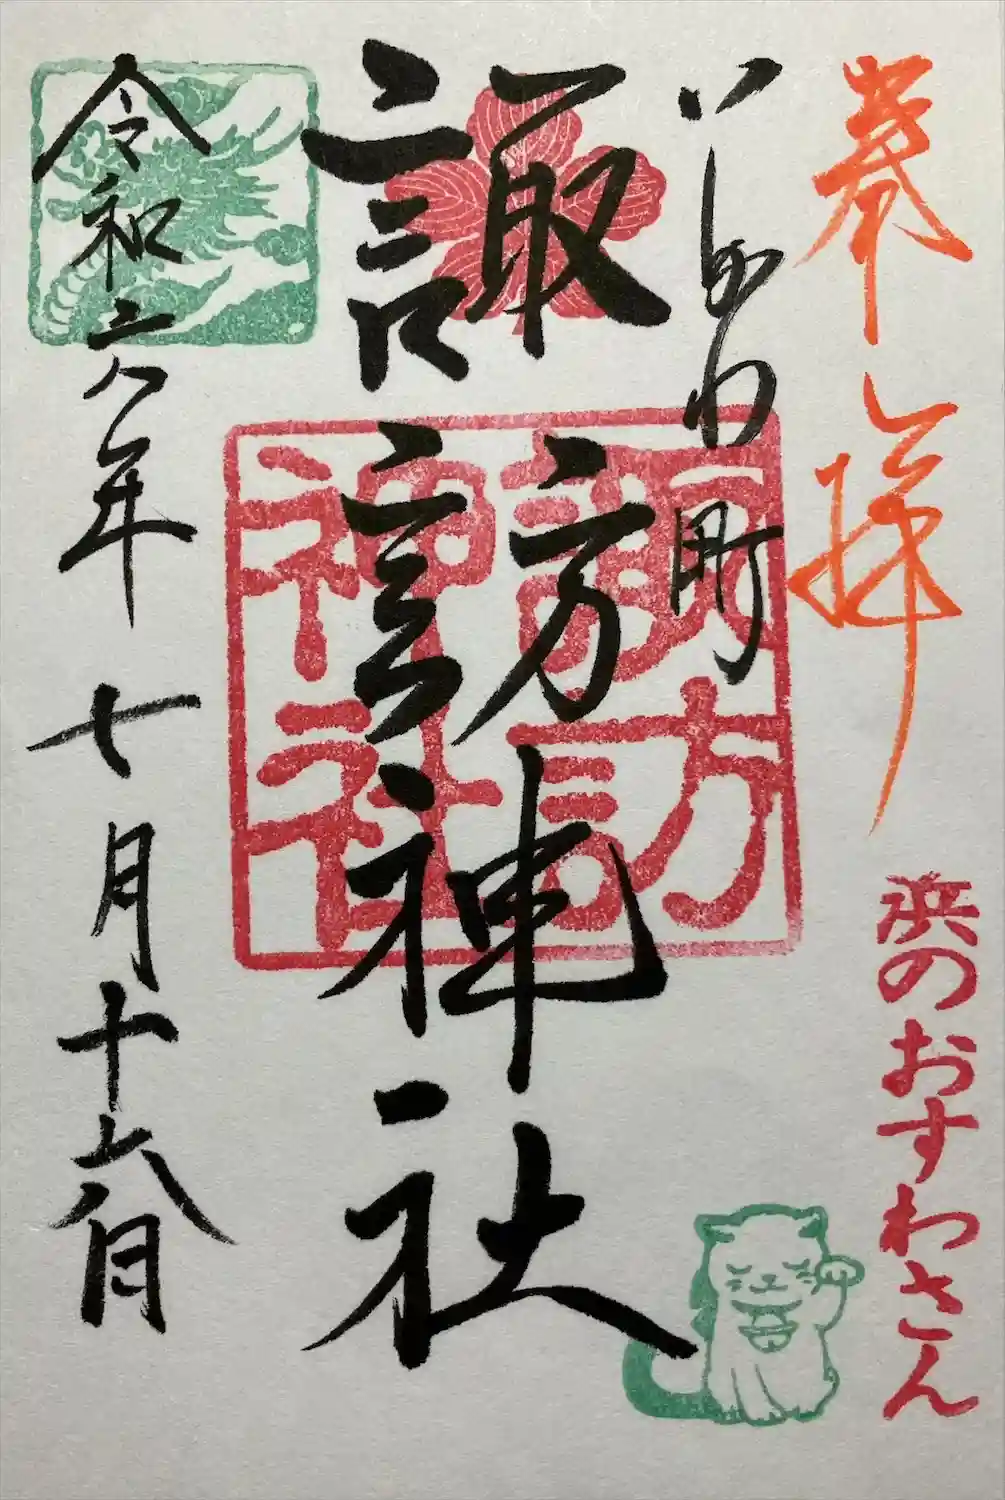 奉拝
浜のおすわさん
いしかわ町
諏訪神社
諏訪神社
令和六年七月十六日